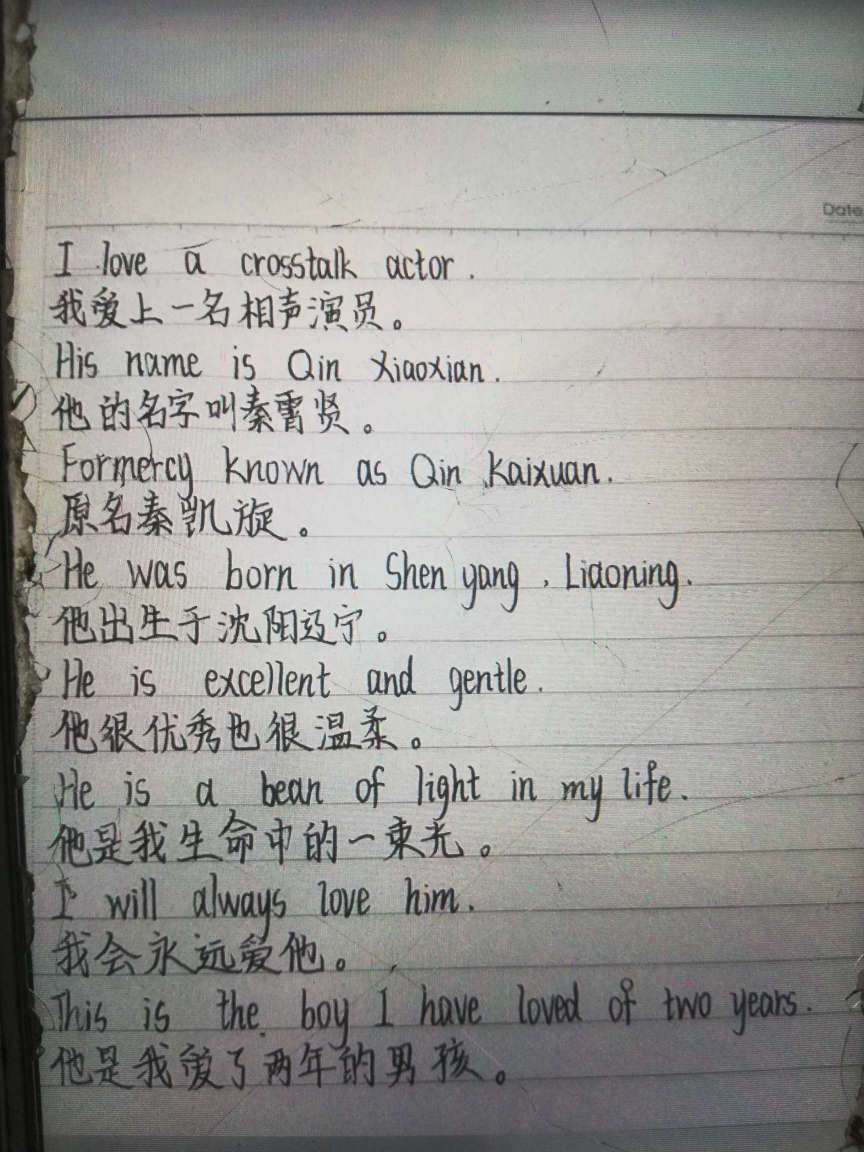 Date
I love a crosstalk actor.
我爱上一名相声演员。
His name is Qin Xiaoxian.
他的名字叫秦霄贤。
Formercy known as Qin Kaixuan.
原名秦凯旋。
He was born in Shen yang , Liaoning.
他出生于沈阳辽宁。
He is excellent and gentle.
他很优秀也很温柔。
He is a bean of light in my life.
他是我生命中的一束光。
I will always love him.
我会永远爱他。
This is the boy I have loved of two years.
他是我爱了两年的男孩。